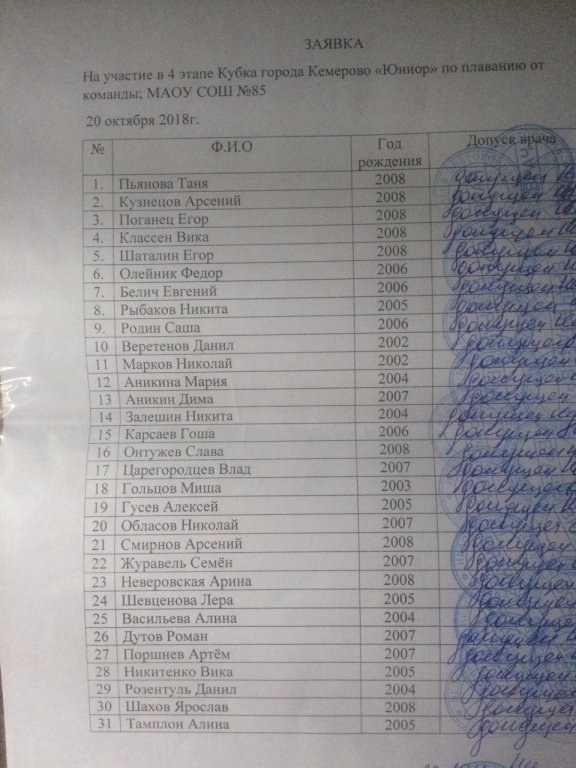 ЗАЯВКА
На участие в 4 этапе Кубка города Кемерово «Юниор» по плаванию от
команды; МАОУ СОШ №85
20 октября 2018г.
№ Ф.И.О Год рождения Допуск врача
1. Пьянова Таня 2008 допущен
2. Кузнецов Арсений 2008 допущен
3. Поганец Егор 2008 допущен
4. Классен Вика 2008 допущен
5. Шаталин Егор 2008 допущен
6. Олейник Федор 2006 допущен
7. Белич Евгений 2006 допущен
8. Рыбаков Никита 2005 допущен
9. Родин Саша 2006 допущен
10 Веретенов Данил 2002 допущен
11 Марков Николай 2002 допущен
12 Аникина Мария 2004 допущен
13 Аникин Дима 2007 допущен
14 Залешин Никита 2004 допущен
15 Карсаев Гоша 2006 допущен
16 Онтужев Слава 2008 допущен
17 Царегородцев Влад 2007 допущен
18 Гольцов Миша 2003 допущен
19 Гусев Алексей 2005 допущен
20 Обласов Николай 2007 допущен
21 Смирнов Арсений 2008 допущен
22 Журавель Семён 2007 допущен
23 Неверовская Арина 2008 допущен
24 Шевценова Лера 2005 допущен
25 Васильева Алина 2004 допущен
26 Дутов Роман 2007 допущен
27 Поршнев Артём 2007 допущен
28 Никитенко Вика 2005 допущен
29 Розентуль Данил 2004 допущен
30 Шахов Ярослав 2008 допущен
31 Тамплон Алина 2005 допущен